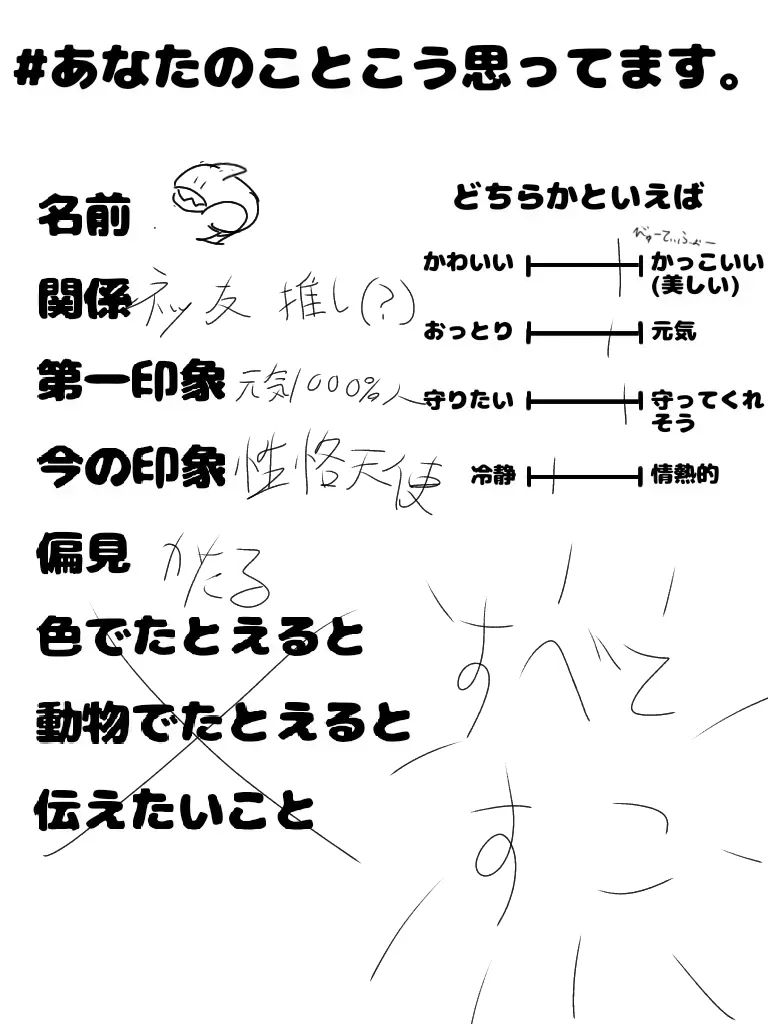 #あなたのことこう思ってます。
名前
関係 ネッ友 推し(?)
第一印象 元気1000%人
今の印象 性格天使
偏見 かたる
色でたとえると
動物でたとえると
伝えたいこと
どちらかといえば
びゅーてぃふぉー
かわいい かっこいい
(美しい)
おっとり 元気
守りたい 守ってくれ
そう
冷静 情熱的
すべて
すこ